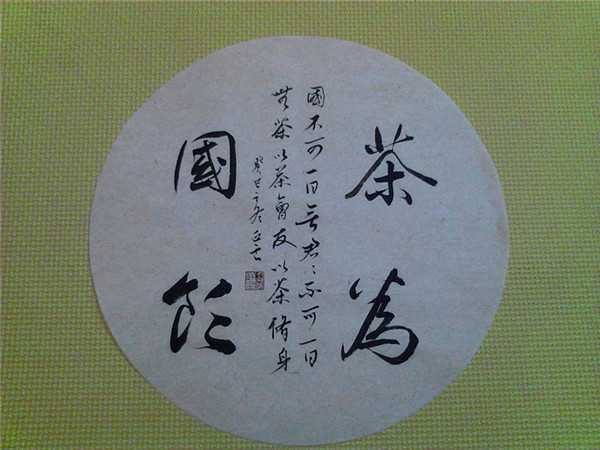 茶為
國飲
國不可一日无君君不可一日
無茶以茶會友以茶脩身
癸巳之冬